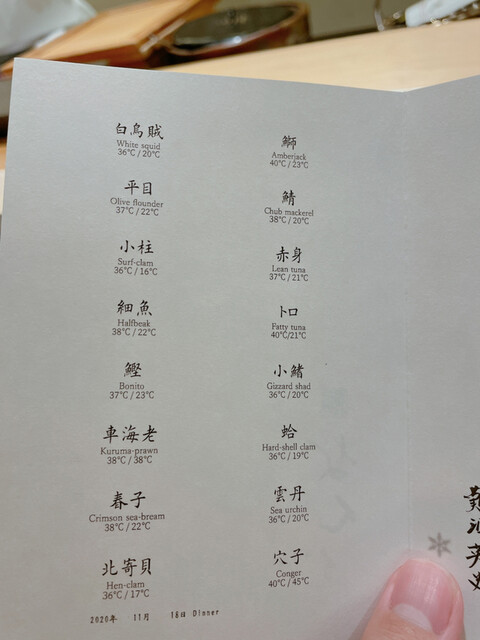 白烏賊
White squid
36℃ / 20℃
平目
Olive flounder
37℃ / 22℃
小柱
Surf-clam
36℃ / 16℃
細魚
Halfbeak
38℃ / 22℃
鰹
Bonito
37℃ / 23℃
車海老
Kuruma-prawn
38℃ / 38℃
春子
Crimson sea-bream
38℃ / 22℃
北寄貝
Hen-clam
36℃ / 17℃
鰤
Amberjack
40℃ / 23℃
鯖
Chub mackerel
38℃ / 20℃
赤身
Lean tuna
37℃ / 21℃
トロ
Fatty tuna
40℃/21℃
小鰭
Gizzard shad
36℃ / 20℃
蛤
Hard-shell clam
36℃ / 19℃
雲丹
Sea urchin
36℃ / 20℃
穴子
Conger
40℃ / 45℃
2020年 11月 18日 Dinner